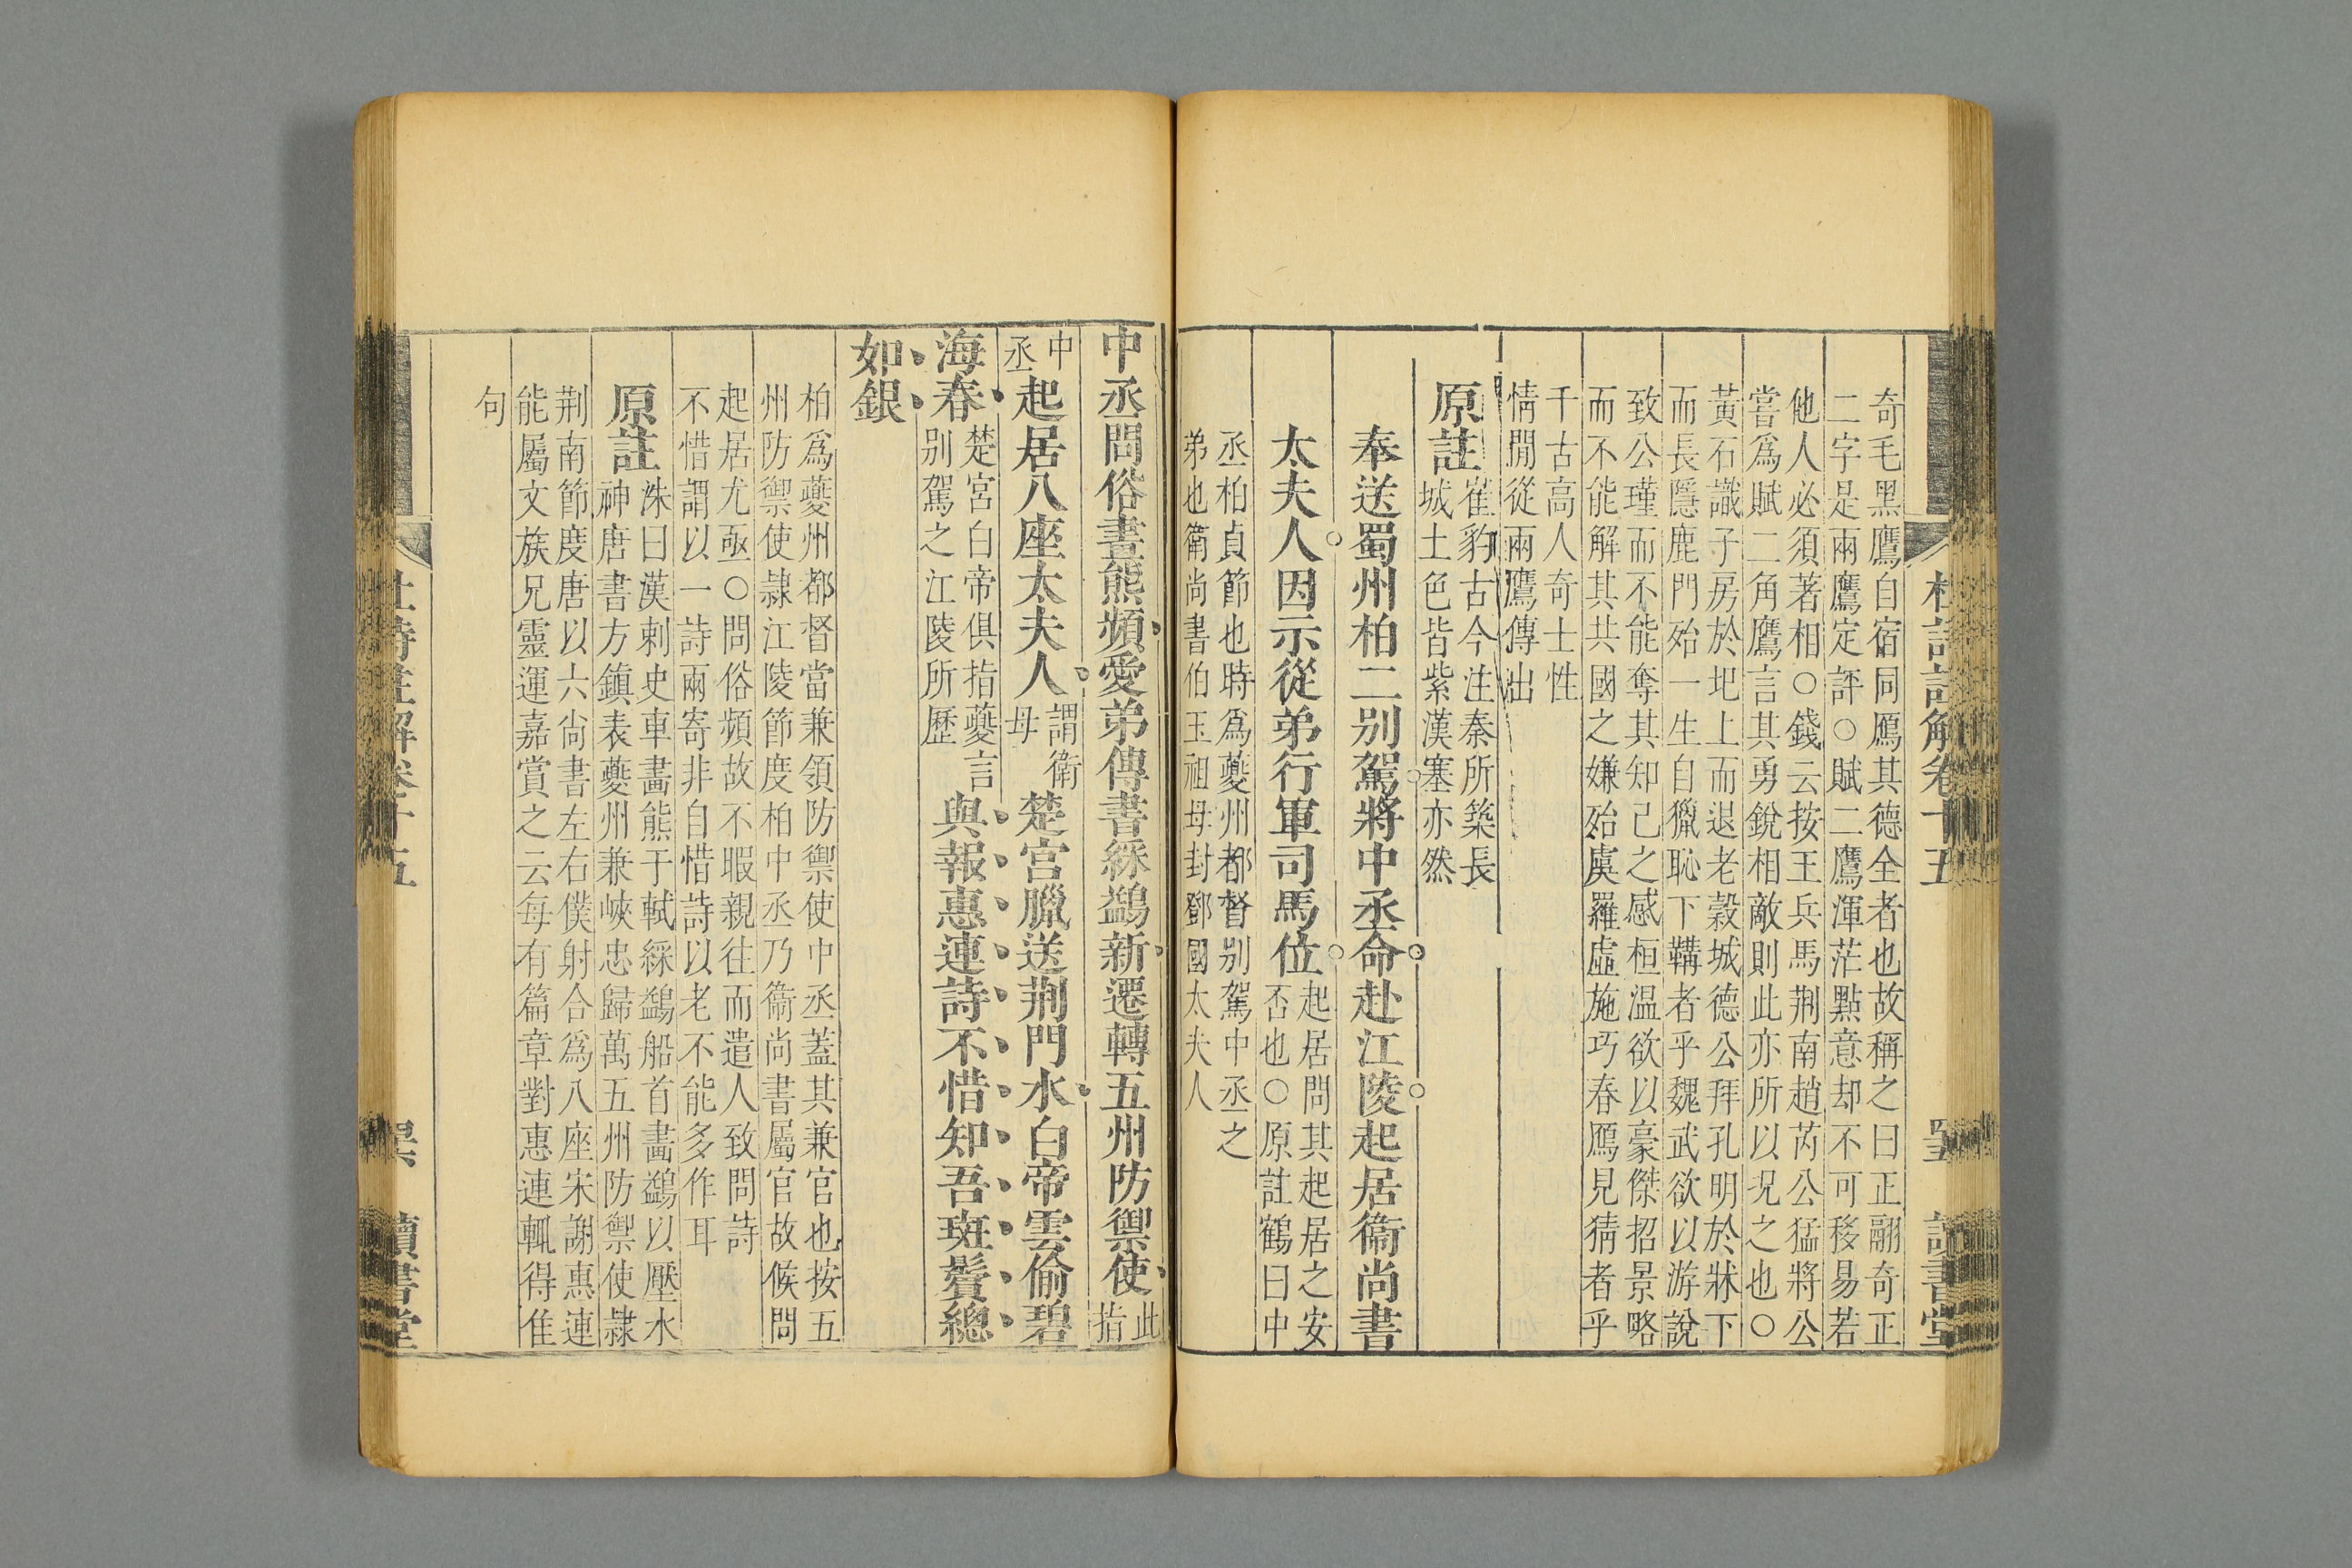 奇毛黑鷹自宿同鴈其德全者也故稱之曰正翮奇正
二字是兩鷹定評○賦二鷹渾茫點意却不可移易若
他人必須著相○錢云按王兵馬荆南趙芮公猛將公
嘗爲賦二角鷹言其勇銳相敵則此亦所以况之也○
黃石識子房於圯上而退老穀城德公拜孔明於牀下
而長隱鹿門殆一生自獵恥下鞲者乎魏武欲以游說
致公瑾而不能奪其知己之感桓温欲以豪傑招景略
而不能解其共國之嫌殆虞羅虛施巧春鴈見猜者乎
千古高人奇士性
情閒從兩鷹傳出
原註
崔豹古今注秦所築長
城土色皆紫漢塞亦然
奉送蜀州柏二别駕將中丞命赴江陵起居衞尚書
太夫人因示從弟行軍司馬位
起居問其起居之安
否也○原註鶴曰中
丞柏貞節也時爲夔州都督别駕中丞之
弟也衞尚書伯玉祖母封鄧國太夫人
杜詩註解卷十五
讀書堂
中丞問俗畫熊頻愛弟傳書綵鷁新遷轉五州防禦使
此
指
中
丞
起居八座太夫人
謂衞
母
楚宮臘送荆門水白帝雲偷碧
海春
楚宮白帝俱指夔言
别駕之江陵所歷
與報惠連詩不惜知吾斑鬢總
如銀
柏爲夔州都督當兼領防禦使中丞蓋其兼官也按五
州防禦使隷江陵節度柏中丞乃衞尚書屬官故候問
起居尤亟○問俗頻故不暇親往而遣人致問詩
不惜謂以一詩兩寄非自惜詩以老不能多作耳
原註
洙曰漢刺史車畫熊于軾綵鷁船首畫鷁以壓水
神唐書方鎮表夔州兼峽忠歸萬五州防禦使隷
荆南節度唐以六尚書左右僕射合爲八座宋謝惠連
能屬文族兄靈運嘉賞之云每有篇章對惠連輒得佳
句
杜詩註解卷十五
讀書堂